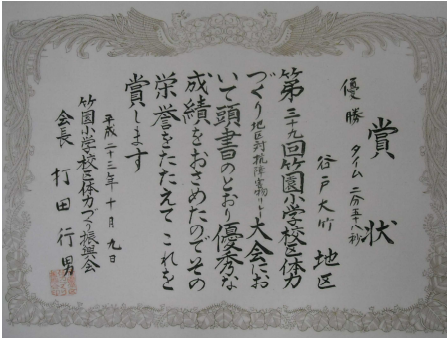 賞状
優勝 タイム 二分五十八秒
谷戸大竹 地区
第三十九回竹園小学校区体力
づくり地区対抗障害物リレー大会にお
いて頭書のとおり優秀な
成績をおさめたのでその
栄誉をたたえてこれを
賞します
平成二十三年十月九日
竹園小学校区体力づくり振興会
会長 打田行男